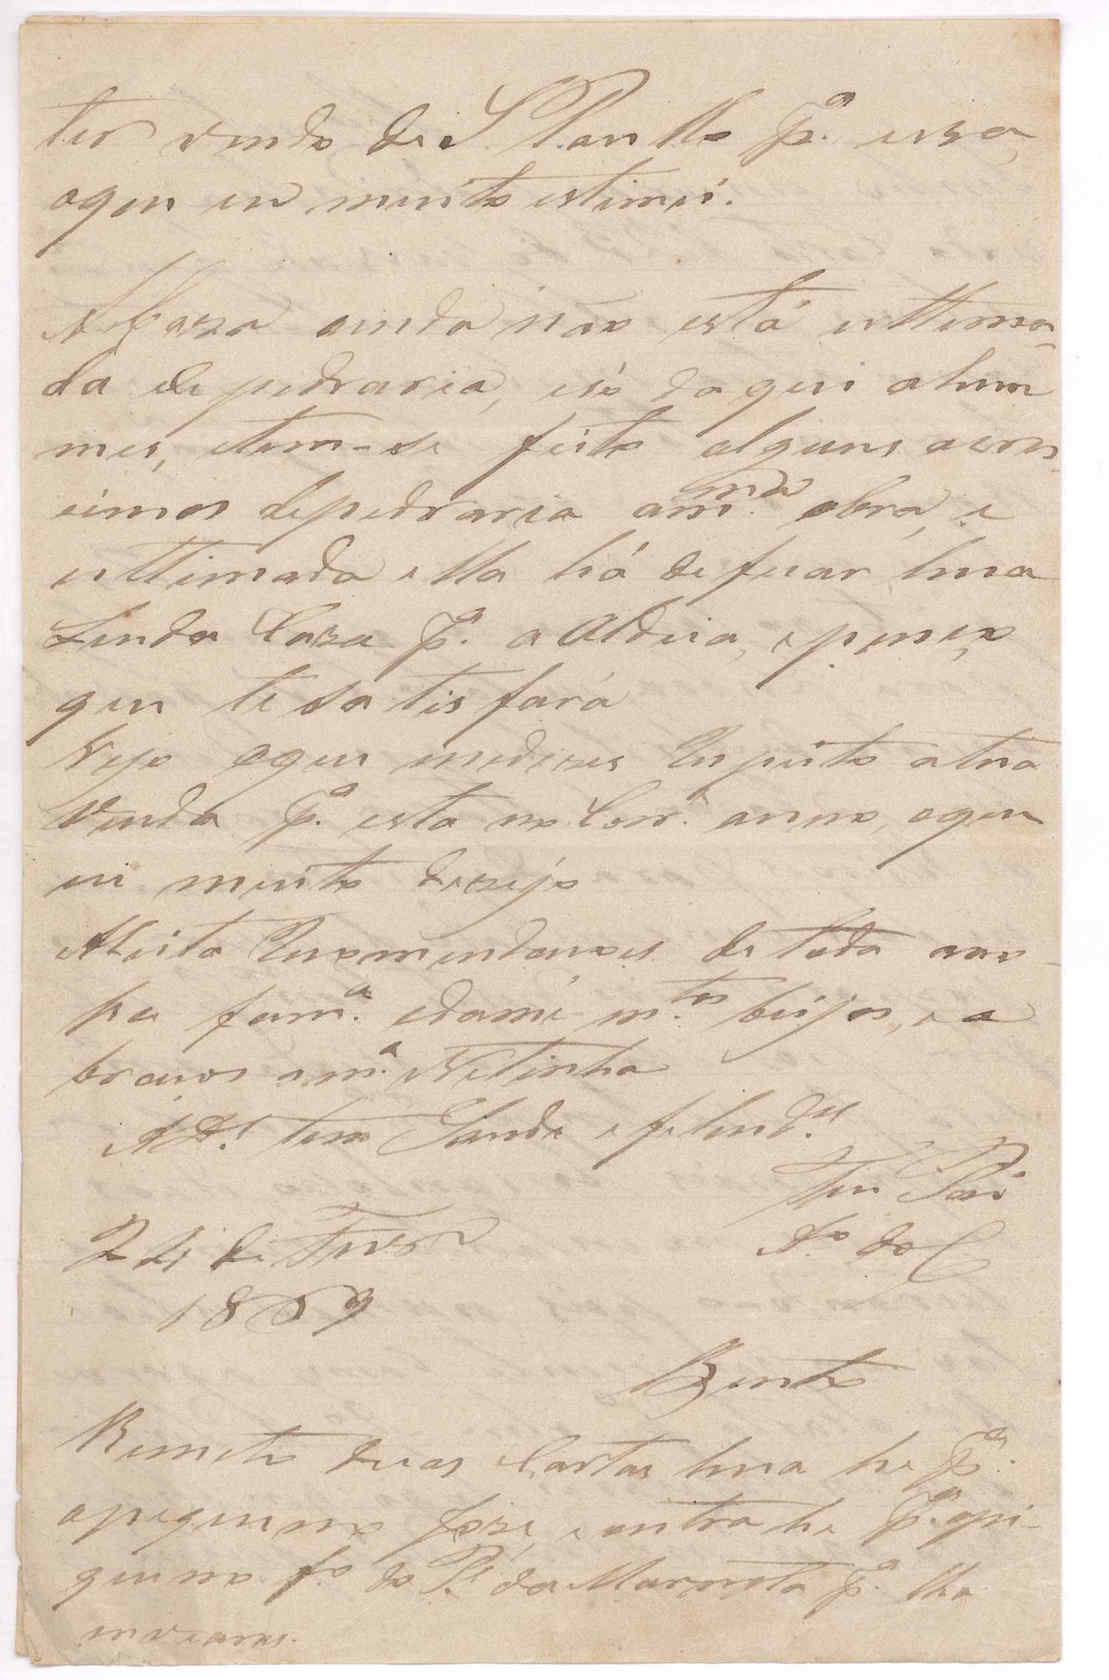 ter vindo de S. Paullo pª. essa,
oque eu muito estimei.
A Caza ainda não está ulttima-
da de pedraria, e só daqui a hum
mes, etem-se feito alguns acres-
cimos depedraria am.ma obra, e
ulttimada ella há de ficar huma
Linda Caza pª. a Aldeia, epenço,
que te satisfará
Vejo oque medizes Respeito atua
Vinda pª. esta no Corr.e anno, oque
eu muito dezejo
Aceita Recomendacoes de toda nos-
sa famª. edamé m.tos beijos, e a
bracos amª. Netinha
A Ds. tem Saude e felicid.es
Teu Pai
Aº. do C
24 de
1869
Bento
Remeto duas Cartas huma he pª.
opequeno Joze, e outra he pª. ope-
queno fº. do Pe. da Marmeta pª. lha
enviares.